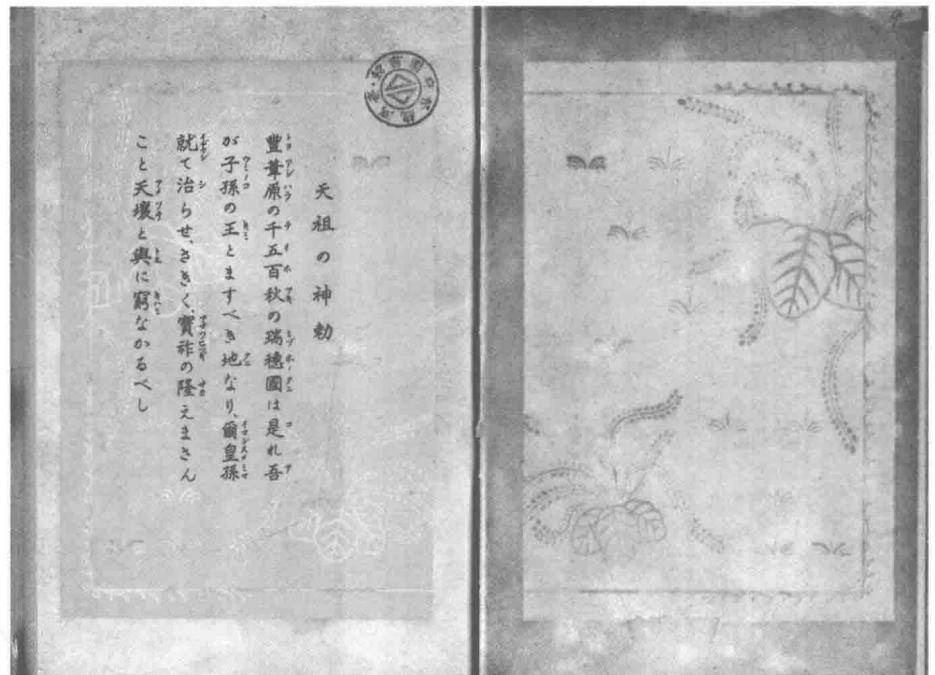 天祖の神勅
豐葦原の千五百秋の瑞穗國は是れ吾
が子孫の王とますべき地なり、爾皇孫
就て治らせ、さきく、寶祚の隆えまさん
こと天壤と與に窮なかるべし